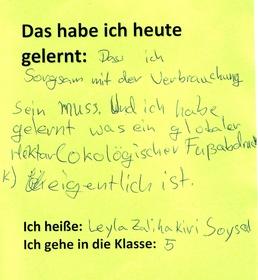 Das habe ich heute
gelernt: Dass ich
Sorgsam mit der Verbrauchung
sein muss. Und ich habe
gelernt was ein globaler
Hektar (ökologischer Fußabdruc
k) eigentlich ist.
Ich heiße: Leyla Zaliha Kivi Soysal
Ich gehe in die Klasse: 5